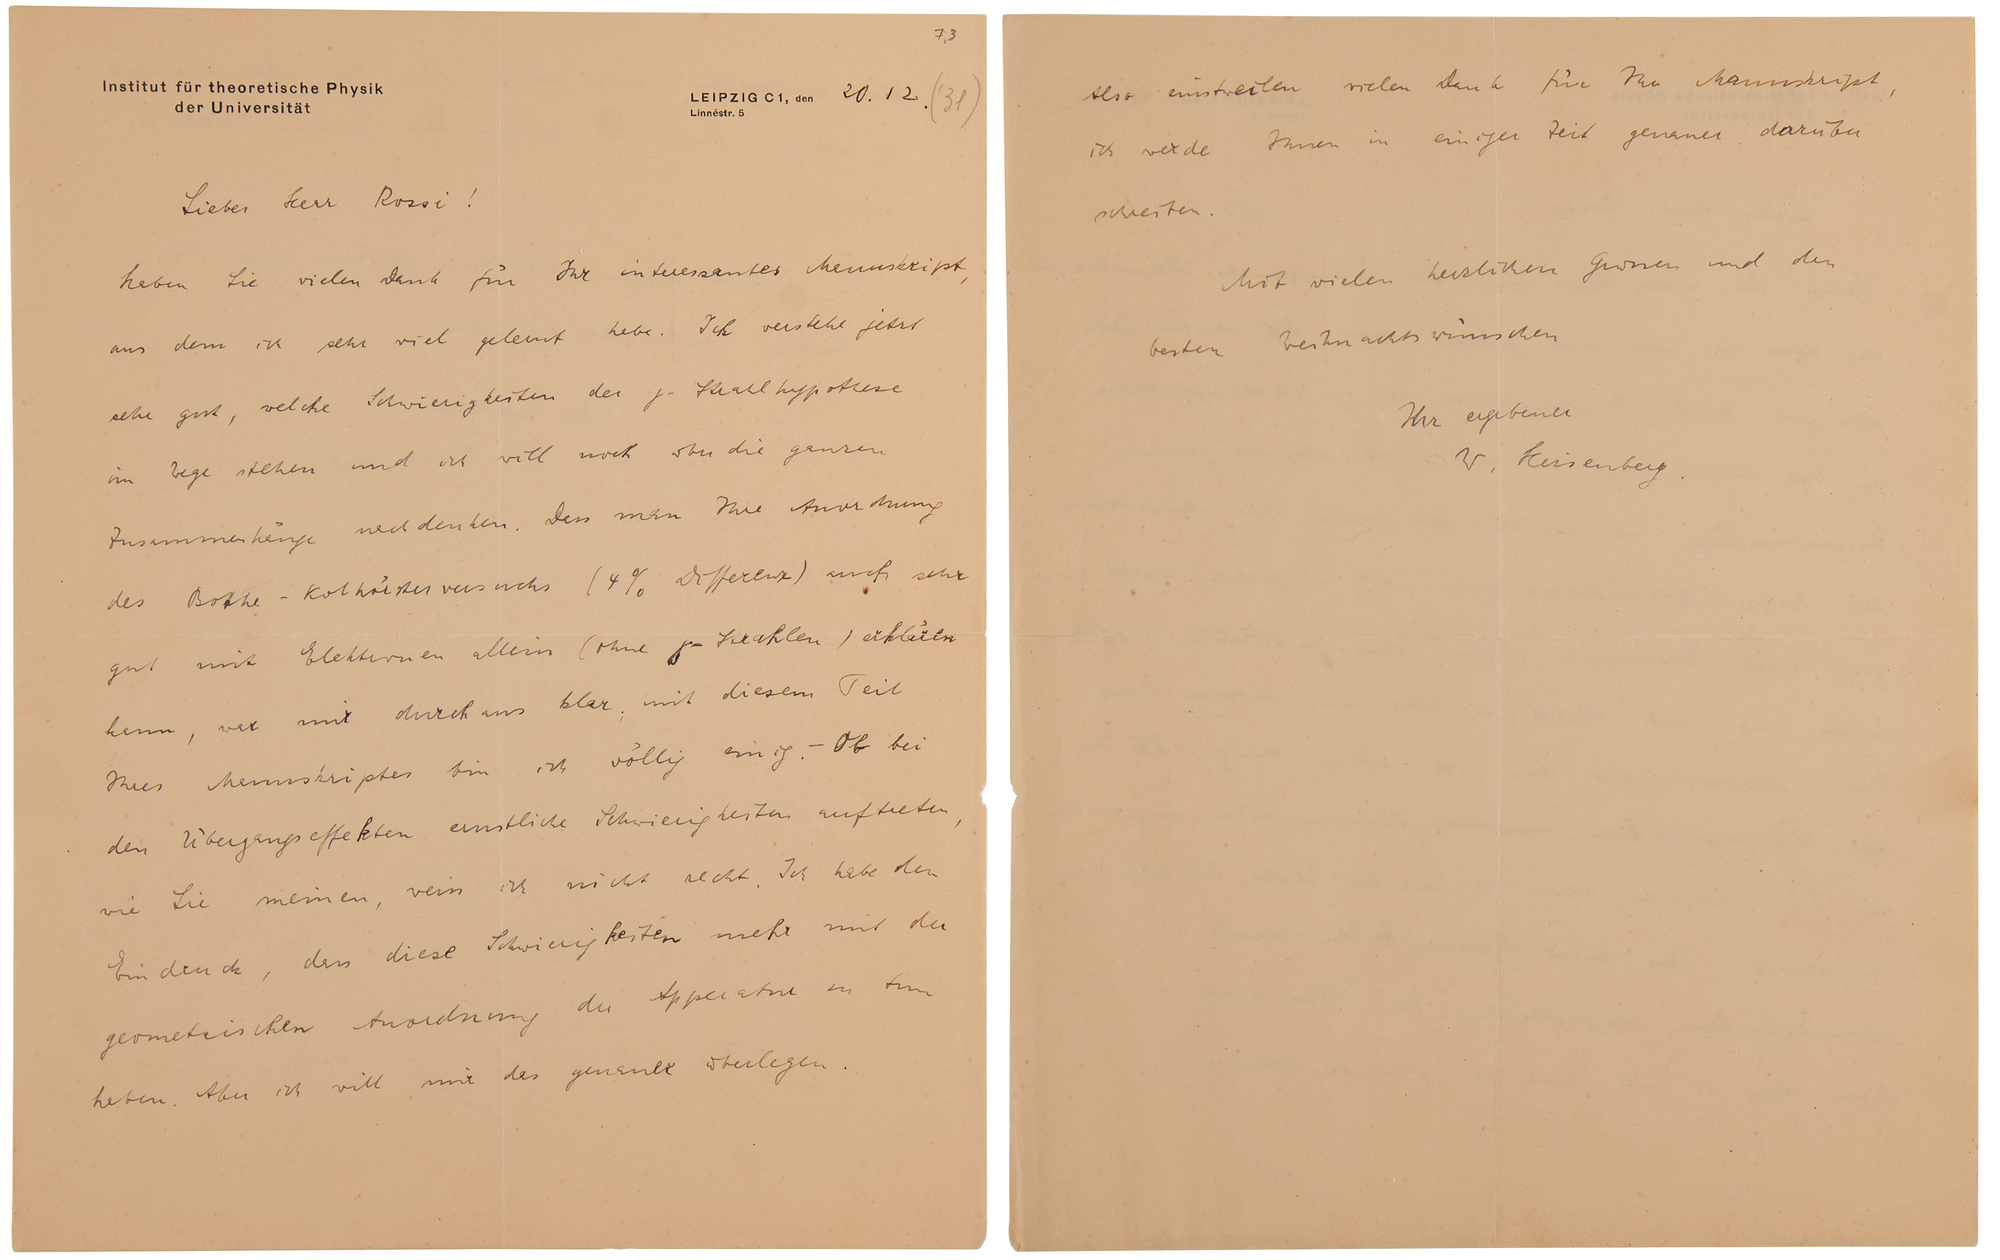 7,3
Institut für theoretische Physik
der Universität
LEIPZIG C1, den 20. 12. (31)
Linnéstr. 5
Lieber Herr Rossi!
haben Sie vielen Dank für Ihr interessantes Manuskript,
aus dem ich sehr viel gelernt habe. Ich verstehe jetzt
sehr gut, welche Schwierigkeiten der γ-Strahlhypothese
im Wege stehen und ich will noch über die ganzen
Zusammenhänge nachdenken. Dass man Ihre Anordnung
des Bothe-Kolhörsterversuchs (4% Differenz) auch sehr
gut mit Elektronen allein (ohne γ-Strahlen) erklären
kann, war mir durchaus klar; mit diesem Teil
Ihres Manuskriptes bin ich völlig einig. – Ob bei
den Übergangseffekten ernstliche Schwierigkeiten auftreten,
wie Sie meinen, weiss ich nicht recht. Ich habe den
Eindruck, dass diese Schwierigkeiten mehr mit der
geometrischen Anordnung der Apparatur zu tun
haben. Aber ich will mir das genauer überlegen.
Also einstweilen vielen Dank für Ihr Manuskript,
ich werde Ihnen in einiger Zeit genauer darüber
schreiben.
Mit vielen herzlichen Grüssen und den
besten Weihnachtswünschen
Ihr ergebener
W. Heisenberg.